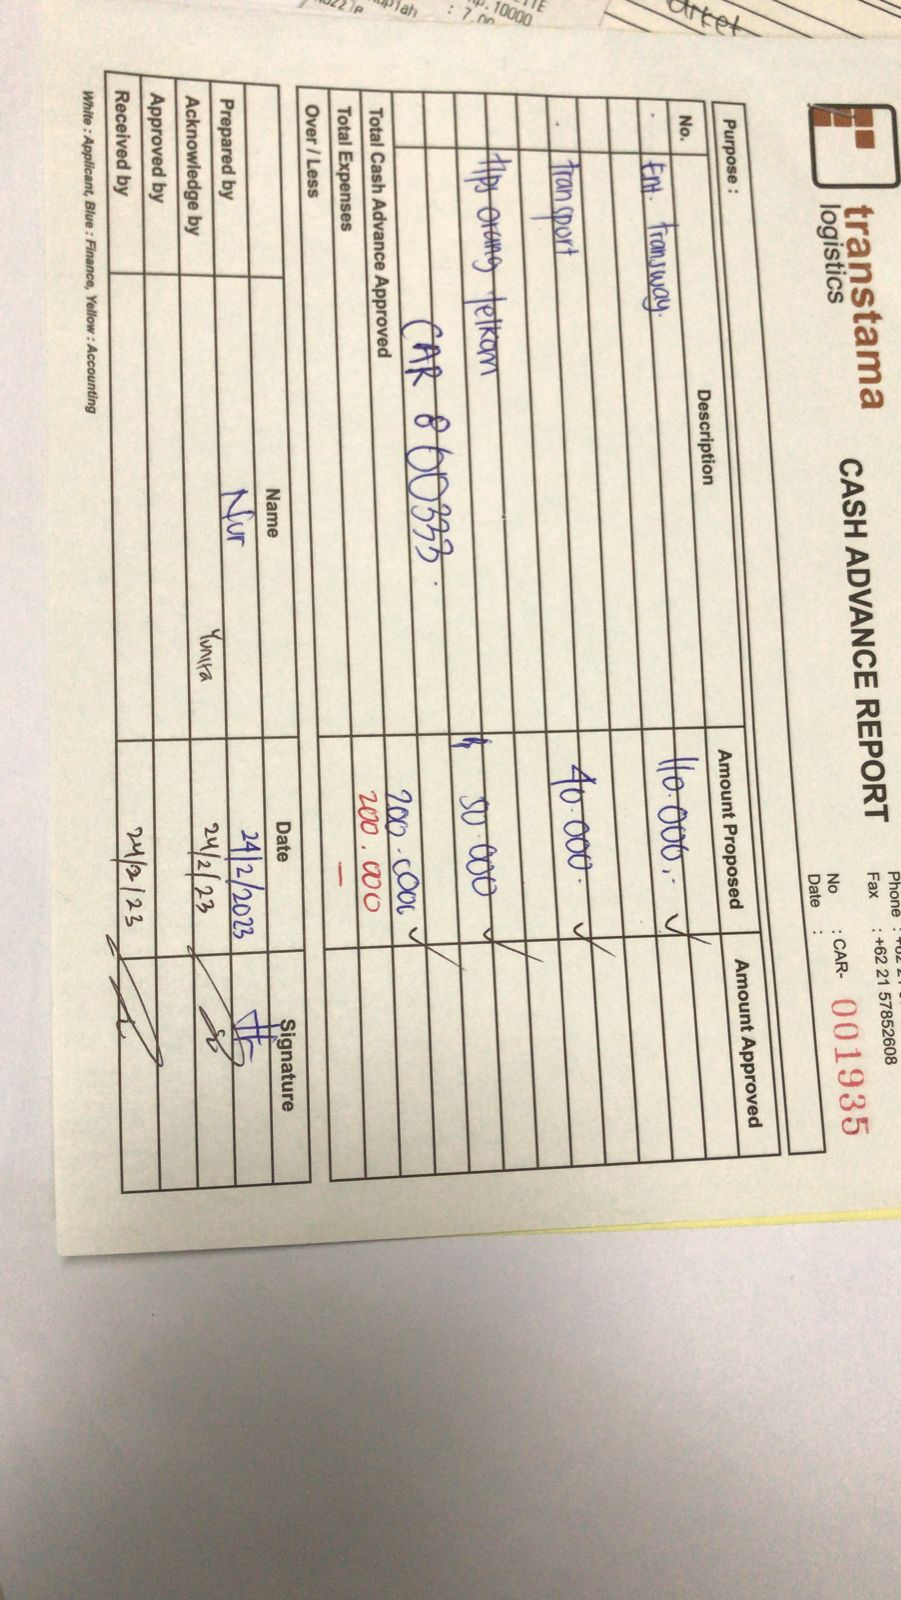 transtama
logistics
CASH ADVANCE REPORT
Phone :
Fax : +62 21 57852608
No : CAR- 001935
Date :
Purpose :
No. Description Amount Proposed Amount Approved
Ent. Transway. 110.000,-
Transport 40.000.
Tips orang telkom 50.000
CAR 860333. 200.000
Total Cash Advance Approved 200.000
Total Expenses –
Over / Less
Name Date Signature
Prepared by Nur 24/2/2023
Acknowledge by Yunita 24/2/23
Approved by
Received by 24/2/23
White : Applicant, Blue : Finance, Yellow : Accounting
: 7.00
. 10000